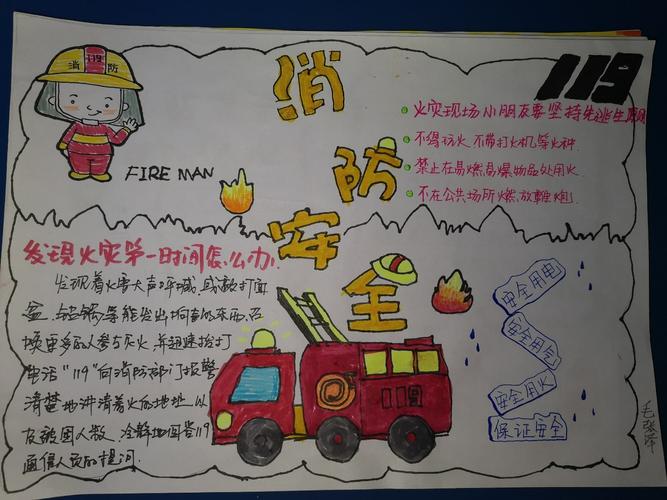 消防安全
119
消 119 防
FIRE MAN
火灾现场小朋友要坚持先逃生原则
不得玩火 不带打火机等火种
禁止在易燃易爆物品处用火
不在公共场所燃放鞭炮
发现火灾第一时间怎么办
发现着火害大声呼喊,或敲打面
盆、锅碗等能发出响声的东西,召
唤更多的人参与灭火,并迅速拨打
电话“119”向消防部门报警
清楚地讲清着火的地址,以
及被困人数、冷静地回答119
通信人员的提问.
安全用电
安全用气
安全用火
保证安全